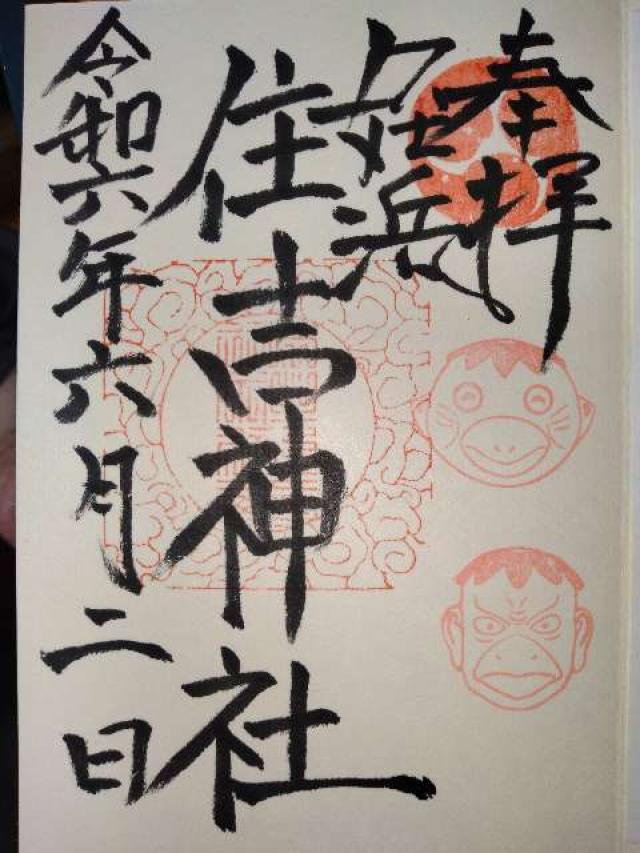 奉拝
姪浜
住吉神社
令和六年六月二日